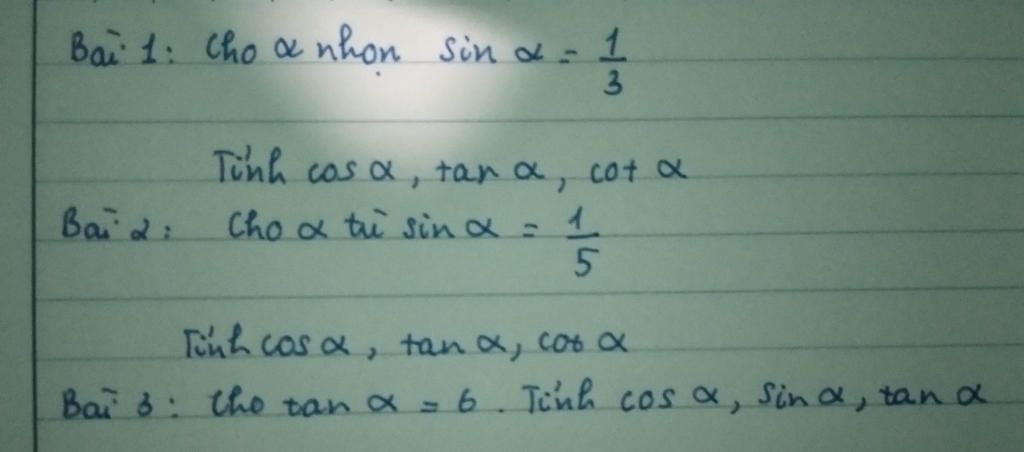 Bài 1: Cho α nhọn sin α = 1/3
Tính cos α, tan α, cot α
Bài 2: Cho α tù sin α = 1/5
Tính cos α, tan α, cot α
Bài 3: Cho tan α = 6. Tính cos α, sin α, tan α